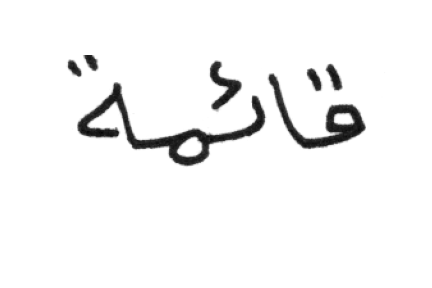 قائمة